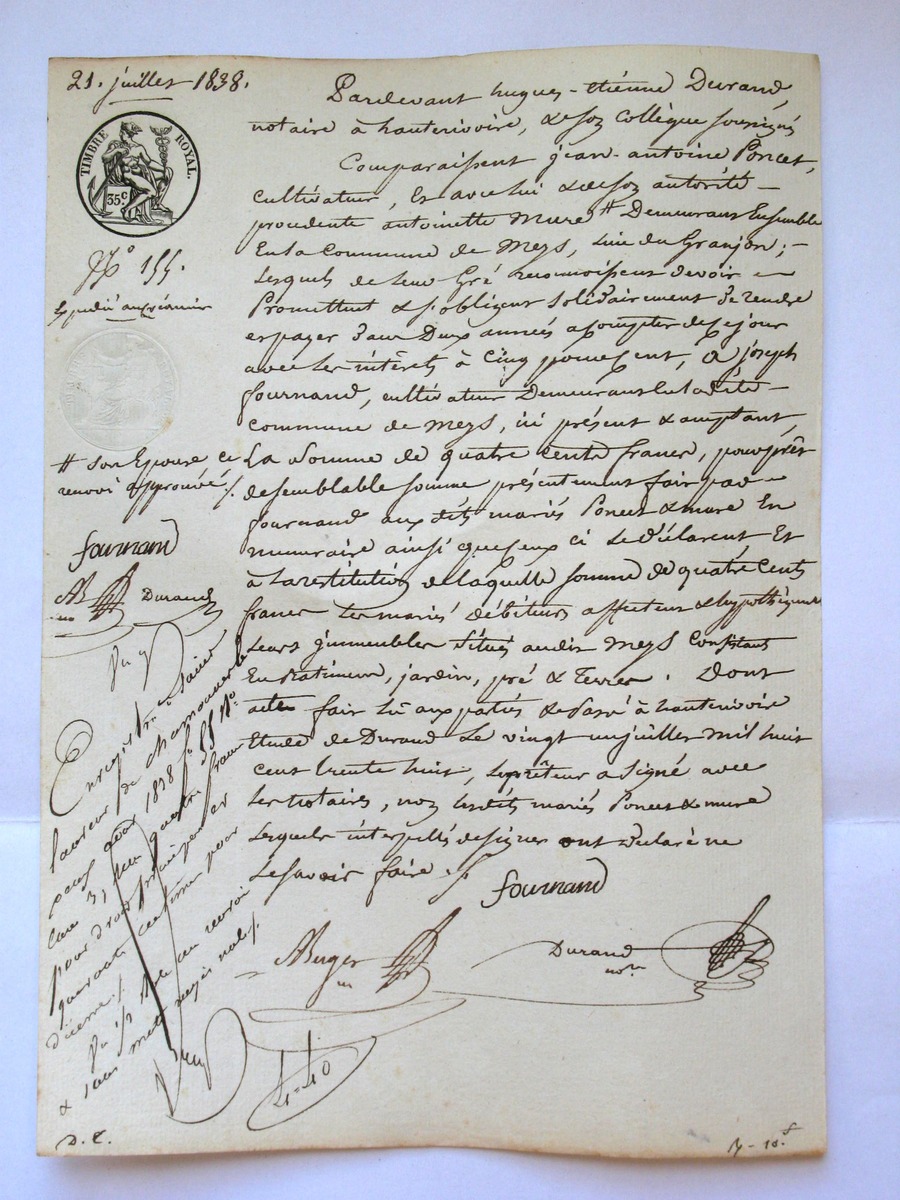 21. juillet 1838.
TIMBRE ROYAL.
35 c
N.° 155.
Expédié au créancier
Pardevant hugues-étienne Durand,
notaire à hauterivoire, & son Collègue soussignés
Comparaissent jean-antoine Poncet,
cultivateur, Et avec lui & de son autorité -
procedente antoinette Mure # Demeurans Ensemble
En la Commune de Meys, lieu du Granjon; -
Lesquels de leur Gré Reconnoissent devoir -
Promettent & s'obligent solidairement de rendre
et payer dans Deux années a compter de ce jour
avec les intérêts à Cinq pour cent, à joseph
fournand, cultivateur Demeurant En la dite -
Commune de Meys, ici présent & acceptant,
La Somme de quatre Cents francs, pour prêt
de semblable somme présentement fait par -
fournand aux dits mariés Poncet & mure En
numéraire ainsi que ceux ci Le déclarent, Et
à La restitution de laquelle somme de quatre Cents
francs les mariés débiteurs affectent & hypothèquent
Leurs immeubles Situés audit Meys Consistant
En Batiment, jardin, pré & Terres. Dont
acte fait lu aux parties & passé à hauterivoire
Etude de Durand Le vingt un juillet mil huit
cent trente huit, Le prêteur a signé avec
Les notaires, non Lesdits mariés Poncet & mure
Lesquels intérpellés de signer ont déclaré ne
Le Savoir faire ./.
# son Epouse ce
renvoi approuvé ./.
fournand
Durand
Enregistré à Saint
Laurent de Chamousset le
août 1838 f° 55 R°
Case 3, Reçu quatre francs
pour droit principal et
quarante centimes pour
dixième ./.
& sans mots rayés nuls ./.
fournand
Durand
n.re
4=40
D. C.